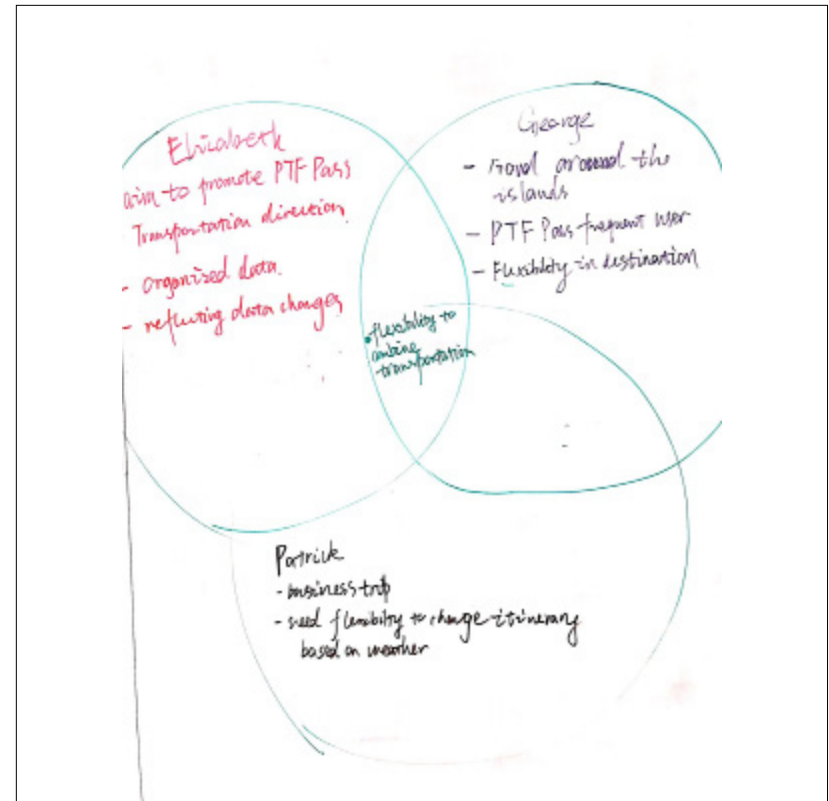 Elizabeth
aim to promote PTF Pass
Transportation direction
- organized data.
- reflecting data changes
George
- around the
islands
- PTF Pass frequent user
- Flexibility in destination
• flexibility to
combine
transportation
Patrick
- business trip
- need flexibility to change itinerary
based on weather